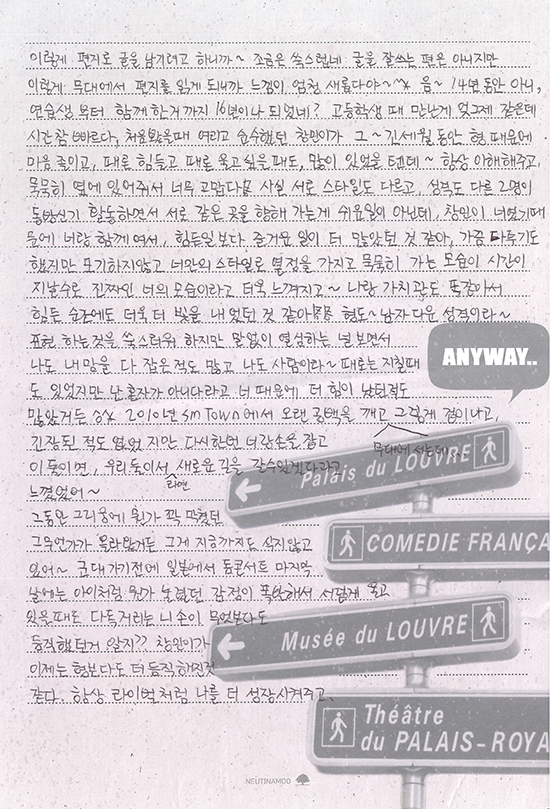 이렇게 편지로 글을 남기려고 하니까~ 조금은 쑥스럽네 글을 잘쓰는 편은 아니지만
이렇게 무대에서 편지를 읽게 되니까 느낌이 엄청 새롭다야~^^* 음~ 14년 동안 아니,
연습생 부터 함께 한거까지 16년이나 되었네? 고등학생 때 만난게 엊그제 같은데
시간 참 빠르다, 처음봤을때 여리고 순수했던 창민이가 그~ 긴세월 동안 형 때문에
마음 졸이고, 때론 힘들고 때론 울고싶을 때도, 많이 있었을 텐데~ 항상 이해해주고,
묵묵히 옆에 있어줘서 너무 고맙다 사실 서로 스타일도 다르고, 성격도 다른 2명이
동방신기 활동하면서 서로 같은 곳을 향해 가는게 쉬운일이 아닌데, 창민이 너였기때
문에 너랑 함께 여서, 힘든일 보다 즐거운 일이 더 많았던 것 같아, 가끔 다투기도
했지만 포기하지않고 너만의 스타일로 열정을 가지고 묵묵히 가는 모습이 시간이
지날수록 진짜인 너의 모습이라고 더욱 느껴지고~ 나랑 가치관도 똑같아서
힘든 순간에도 더욱 더 빛을 내 었던 것 같아 형도~남자 다운 성격이라~
표현 하는것을 쑥스러워 하지만 말없이 열심하는 널 보면서
나도 내 맘을 다 잡은적도 많고 나도 사람이라~ 때로는 지칠때
도 있었지만 난 혼자가 아니다라고 너 때문에 더 힘이 났던적도
많았거든 ^^* 2010년 SM TOWN 에서 오랜 공백을 깨고 그렇게 겁이나고,
무대에 서는데
긴장된 적도 없었 지만 다시한번 너랑손을 잡고
이 둘이면, 우리 둘이서 새로운 길을 갈수있겠다라고
라면
느꼈었어~
그동안 그리움에 뭔가 꽉 막혔던
그무언가가 올라왔거든 그게 지금까지도 잊지않고
있어~ 군대가기전에 일본에서 돔콘서트 마지막
날에는 아이처럼 뭔가 눌렸던 감정이 폭발해서 서럽게 울고
있을때도 다독거리는 니 손이 무엇보다도
듬직했던거 알지?? 창민이가
이제는 형보다도 더 듬직 해진것
같다. 항상 라이벌처럼 나를 더 성장시켜주고、
ANYWAY..
Palais du LOUVRE
COMEDIE FRANÇA
Musée du LOUVRE
Théâtre
du PALAIS-ROYA
NEUTINAMOO